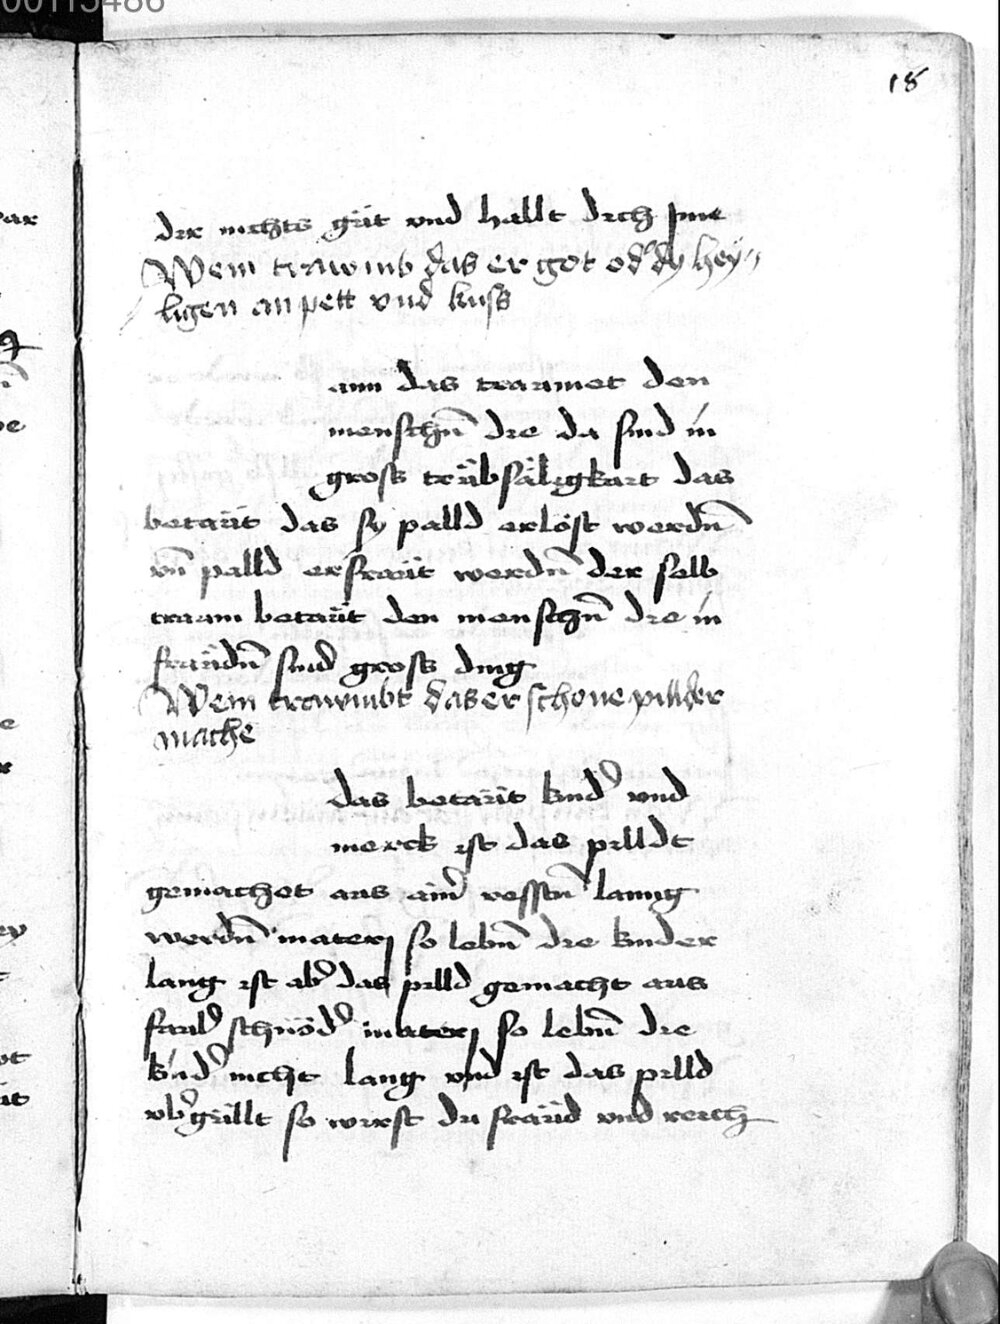 00115486
18
dir nichts gůt vnd hallt dich jnne
Wem trawmb das er got od' dy hey„
ligen an pett vnd kuss
ann das traumet den
menschn̄ die da sind in
gross trübsäligkait das
betaüt das sy palld erlöst werdn̄
vn̄ palld erfraüt werdn̄ der selb
traum betaüt den menschn̄ die in
fraüdn̄ sind gross ding
Wem trawmbt das er schone pillder
mache
das betaüt kind' vnd
merck ist das pilldt
gemachet aus ain' vesstn̄ lanng
werdn̄ materj so lebn̄ die kinder
lang ist ab' das pilld gemacht aus
faul' schnöd' materj so lebn̄ die
kind' nicht lang vnd ist das pilld
vb'güllt so wirst du fraüd vnd reich